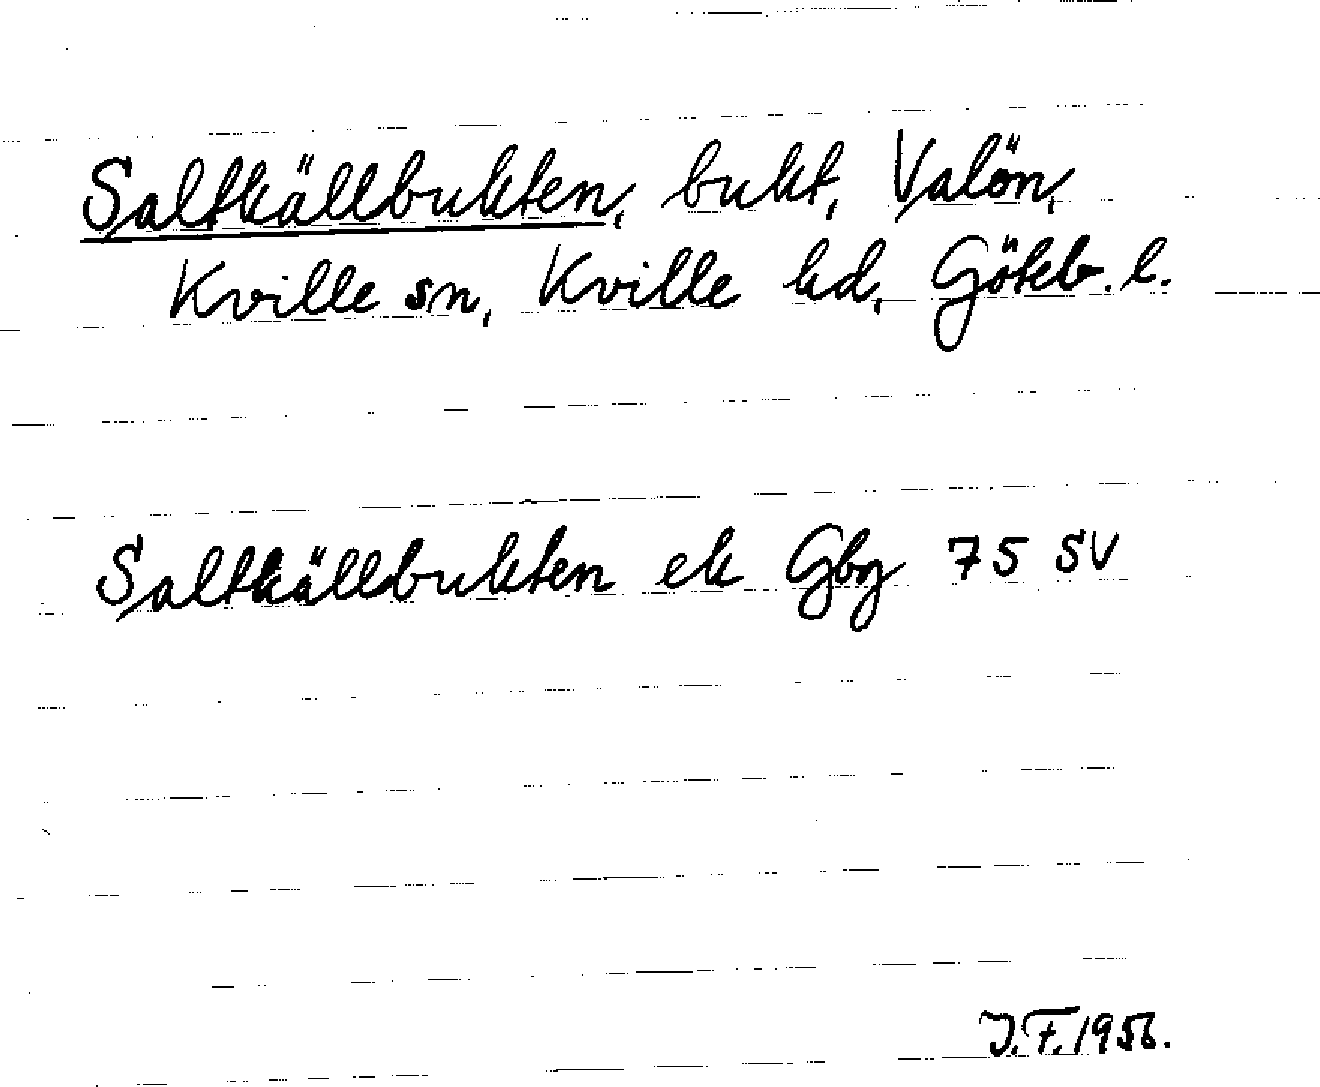 Saltkällbukten, bukt, Valön,
Kville sn, Kville hd, Göteb. l.
Saltkällbukten ek Gbg 75 SV
J.F. 1956.